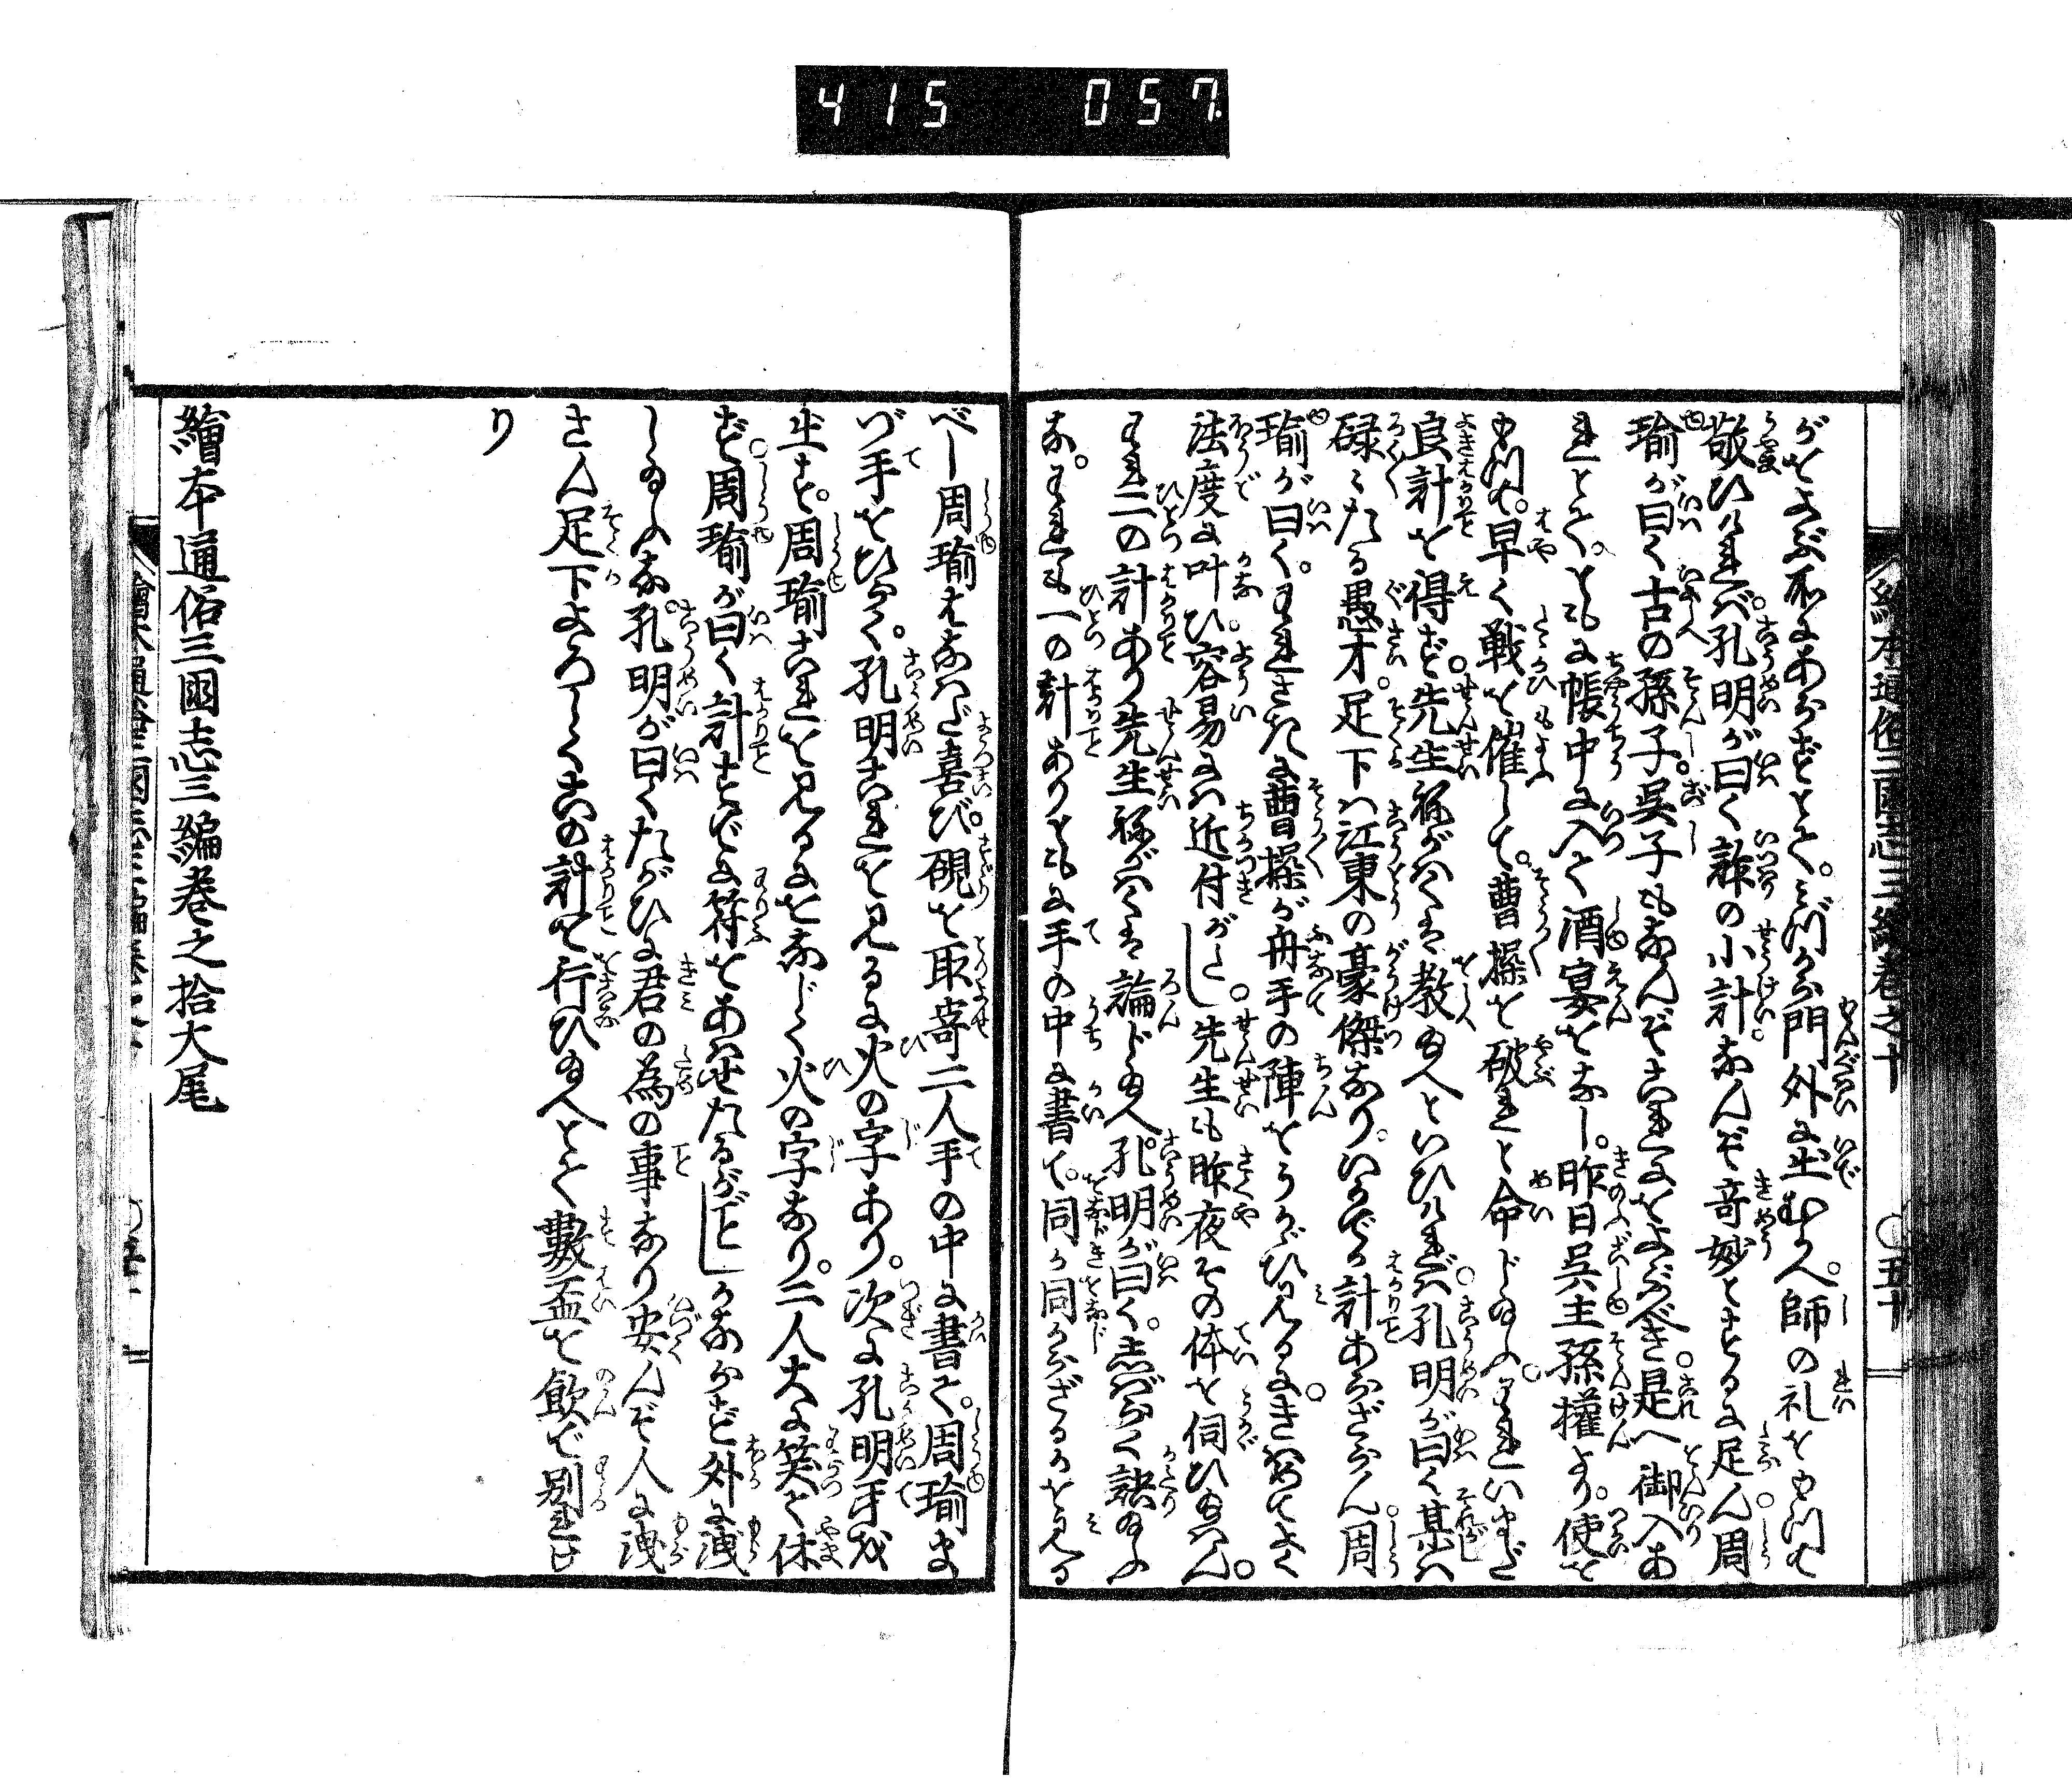 415 057
繪本通俗三國志三編巻之十 〇五十
がをよぶ所にあらずとて。みづから門外に出むかへ。師の礼をもつて
敬ひければ。孔明が曰く詐の小計なんぞ奇妙とするに足ん。周
瑜が曰く古の孫子。呉子もなんぞこれにをよぶべき。是へ御入あ
れとて。ともに帳中に入て酒宴をなし。昨日呉主孫權より。使を
もつて。早く戦を催して。曹操を破れと命じ給ふ。われいまだ
良計を得ず。先生ねがはくは教給へといひければ。孔明が曰く某は
碌々たる愚才。足下は江東の豪傑なり。いかでか計あらざらん。周
瑜が曰く。われさきに曹操が舟手の陣をうかゞひみるに。きはめてよく
法度に叶ひ。容易には近付がたし。先生も昨夜その体を伺ひ給はん。
われ二の計あり先生ねがはくは論じ給へ。孔明が曰く。志ばらく訣給ふ
な。われも一の計ありともに手の中に書て。同か同からざるかを見る
べし周瑜はなはだ喜び。硯を取寄二人手の中に書て。周瑜ま
づ手をひらく。孔明これを見るに火の字あり。次に孔明手を
出す。周瑜これを見るにをなじく火の字なり。二人大に笑て休
ず。周瑜が曰く計すでに符をあはせたるがごとしかならず外に洩
し給ふな。孔明が曰くたがひに君の為の事なり安んぞ人に洩
さん足下よろしくこの計を行ひ給へとて數盃を飲で別れけ
り
繪本通俗三國志三編巻之拾大尾